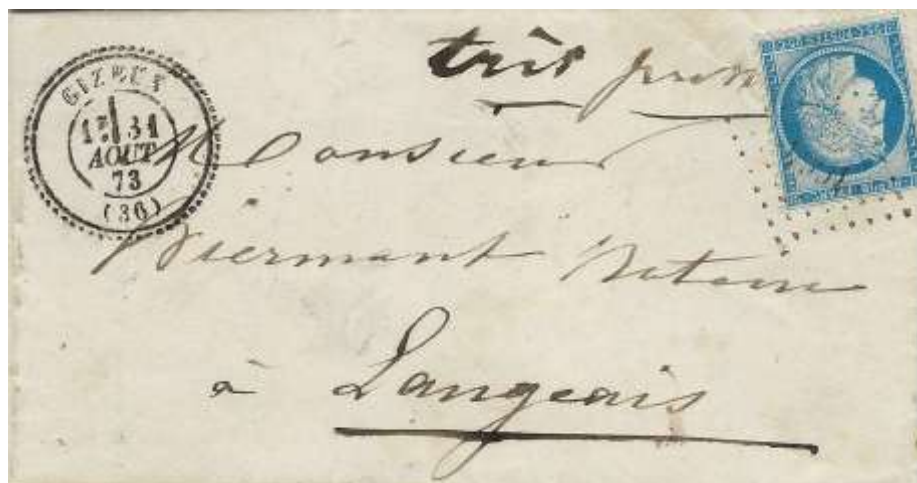 GIZEUX
1E 31
AOUT
73
(36)
très
Monsieur
Biermant Notaire
à Langeais